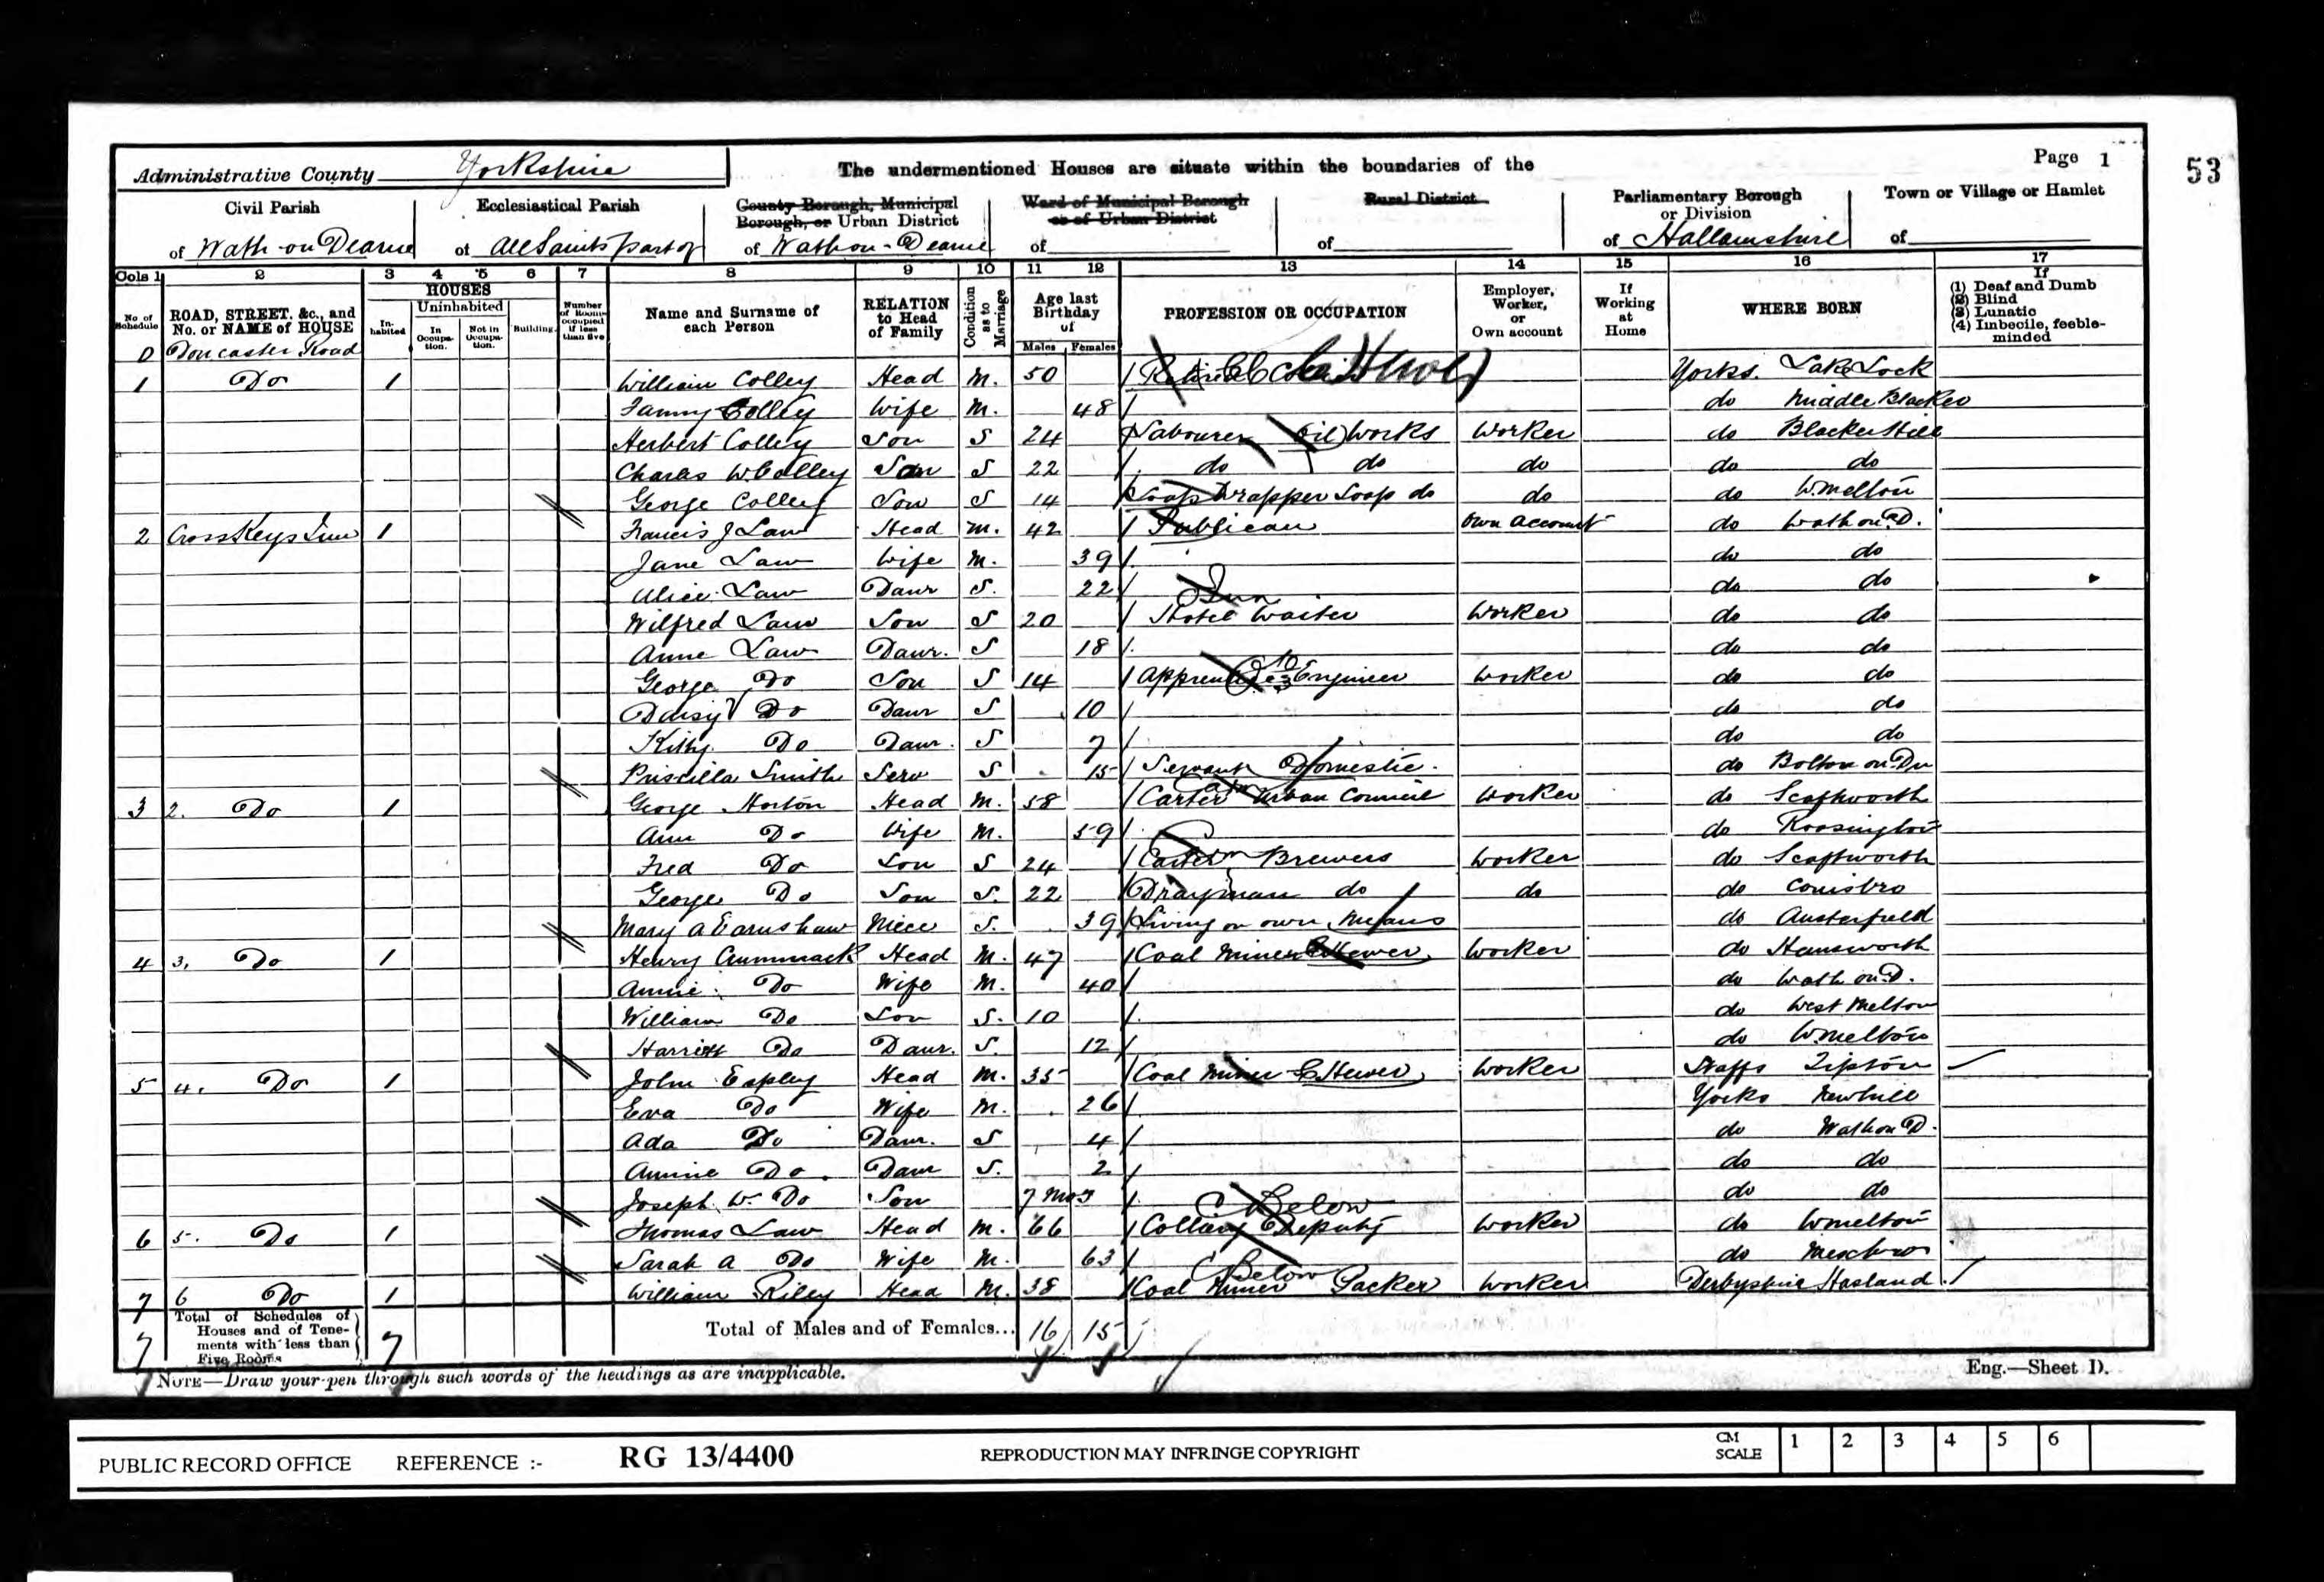 Administrative County Yorkshire
The undermentioned Houses are situate within the boundaries of the
Page 1
53
Civil Parish
of Wath-on Dearne
Ecclesiastical Parish
of All Saints part of
County Borough, Municipal Borough, or Urban District
of Wath on-Dearne
Ward of Municipal Borough or of Urban District
of
Rural District
of
Parliamentary Borough or Division
of Hallamshire
Town or Village or Hamlet
of
Cols 1 2 3 4 5 6 7 8 9 10 11 12 13 14 15 16 17
No of Schedule
ROAD, STREET. &c., and No. or NAME of HOUSE
HOUSES
Inhabited
Uninhabited
In Occupation.
Not in Occupation.
Building.
Number of Rooms occupied if less than five
Name and Surname of each Person
RELATION to Head of Family
Condition as to Marriage
Age last Birthday of
Males Females
PROFESSION OR OCCUPATION
Employer, Worker, or Own account
If Working at Home
WHERE BORN
If
(1) Deaf and Dumb
(2) Blind
(3) Lunatic
(4) Imbecile, feeble-minded
0 Doncaster Road
1 Do 1 William Colley Head M. 50 Retired Hewer Yorks. Lake Lock
Fanny Colley Wife M. 48 do Middle Blacker
Herbert Colley Son S 24 Labourer Oil Works Worker do Blacker Hill
Charles W. Colley Son S 22 do do do do do
George Colley Son S 14 Soap Wrapper Soap do do do W. Melton
2 Cross Keys Inn 1 Francis J Law Head M. 42 Publican Own account do Wath on D.
Jane Law Wife M. 39 do do
Alice Law Daur S. 22 do do
Inn
Wilfred Law Son S 20 Hotel Waiter Worker do do
Anne Law Daur. S 18 do do
George Do Son S 14 Apprentice Engineer Worker do do
Daisy Do Daur S 10 do do
Kitty Do Daur. S 7 do do
Priscilla Smith Serv S 15 Servant Domestic. do Bolton on Dn
3 2. Do 1 George Horton Head M. 58 Carter Urban Council Worker do Scaftworth
Ann Do Wife M. 59 do Roosington
Fred Do Son S 24 Carter Brewers Worker do Scaftworth
George Do Son S. 22 Drayman do do do Conisbro
Mary A Earnshaw Niece S. 39 Living on own Means do Austerfield
4 3, Do 1 Henry Cummack Head M. 47 Coal Miner Hewer Worker do Hemsworth
Annie Do Wife M. 40 do Wath on D.
William Do Son S. 10 do West Melton
Harriett Do Daur. S. 12 do W. Melton
5 4. Do 1 John Espley Head M. 35 Coal Miner Hewer Worker Staffs Tipton
Eva Do Wife M. 26 Yorks Newhill
Ada Do Daur. S 4 do Wath on D.
Annie Do Daur S. 2 do do
Joseph W. Do Son 7 Mos do do
Below
6 5. Do 1 Thomas Law Head M. 66 Colliery Deputy Worker do W melton
Sarah A Do Wife M. 63 do Mexbro
Below
7 6 Do 1 William Riley Head M. 38 Coal Miner Packer Worker Derbyshire Hasland
7 Total of Schedules of Houses and of Tenements with less than Five Rooms 7
Total of Males and of Females... 16 15
NOTE—Draw your pen through such words of the headings as are inapplicable.
Eng.—Sheet D.
PUBLIC RECORD OFFICE REFERENCE :- RG 13/4400 REPRODUCTION MAY INFRINGE COPYRIGHT CM SCALE 1 2 3 4 5 6